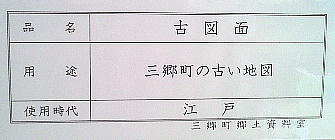 品名 古図面
用途 三郷町の古い地図
使用時代 江戸
三郷町郷土資料室